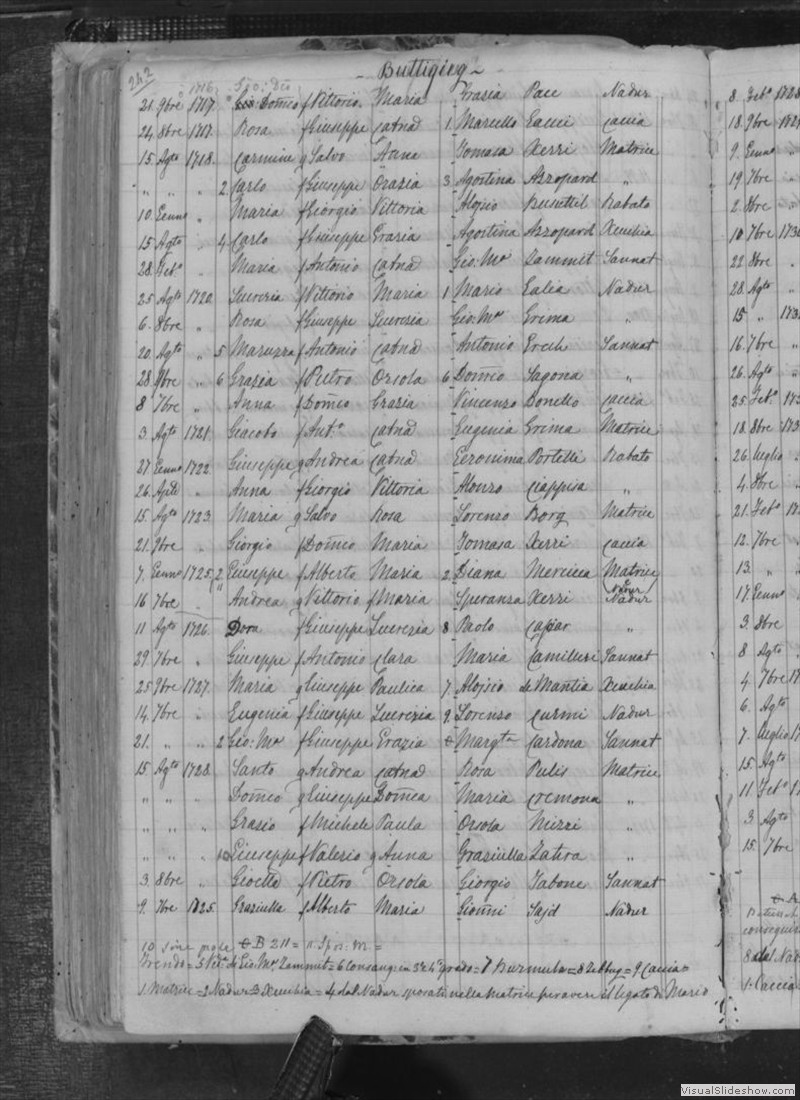 242
1716 Spo: dēo
- Buttigieg -
21. 9bre 1717. Gio Dom̄co f Vittorio Maria Grazia Pace Nadur
24. 8bre 1717. Rosa f Giuseppe Catn̄a 1. Marcello Caccia
15. Agto 1718. Carmine q Salvo Anna Tomasa Xerri Matrice
" " " 2 Carlo f Giuseppe Orazia 3 Agostina Azzopard "
10. Genno " Maria f Giorgio Vittoria Aloisio Busuttil Rabato
15 Agto 4 Carlo f Giuseppe Grazia Agostina Azzopard Xeuchia
28. Feb. " Maria f Antonio Catn̄a Gio: Ma Zammit Sannat
25 Agto 1720. Lucrezia q Vittorio Maria 1 Mario Galia Nadur
6. 8bre " Rosa f Giuseppe Lucrezia Gio: Ma Grima "
20. Agto " 5 Maruzza f Antonio Catn̄a Antonio Grech Sannat
28. 9bre " 6 Grazia f Pietro Orsola 6 Dom̄co Sagona "
8 7bre " Anna f Dom̄co Grazia Vincenzo Bonello Caccia
3. Agto 1721. Giacobo f Anto Catn̄a Eugenia Grima Matrice
27. Genno 1722. Giuseppe q Andrea Catn̄a Geronima Portelli Rabato
26. Aple " Anna f Giorgio Vittoria Alonzo Ciappisa "
15. Agto 1723. Maria q Salvo Rosa Lorenzo Borg Matrice
21. 9bre " Giorgio f Dom̄co Maria Tomasa Xerri Caccia
7. Genno 1725. 2 Giuseppe f Alberto Maria 2 Diana Mercieca Matrice
16 7bre " Andrea q Vittorio f Maria Speranza Xerri Nadur Nadur
11 Agto 1726. Dora f Giuseppe Lucrezia 8 Paolo Caxiar "
29. 7bre " Giuseppe f Antonio Clara Maria Camilleri Sannat
25 9bre 1727. Maria q Giuseppe Paulica 7 Aloisio de Mantia Xeuchia
14. 7bre " Eugenia f Giuseppe Lucrezia 9 Lorenzo Curmi Nadur
21. " " 2 Gio: Ma f Giuseppe Grazia Margta Cardona Sannat
15. Agto 1728. Santo q Andrea Catn̄a Rosa Pulis Matrice
" " " Dom̄co q Giuseppe Dom̄ca Maria Cremona "
" " " Grazio f Michele Paula Orsola Mizzi "
" " " 10 Giuseppe f Valerio q Anna Graziulla Zahra "
3. 8bre " Gioetta f Pietro Orsola Giorgio Tabone Sannat
9. 7bre 1725. Graziulla f Alberto Maria Gionni Sajd Nadur
10. sine prole B 211 = 11. Spo: M =
= 5 Ved. di Gio: Ma Zammit = 6 Consang: in 3 e 4 grado = 7 Burmula = 8 Zebbug = 9 Caccia =
1 Matrice = 2 Nadur = 3 Xeuchia = 4 dal Nadur sposati nella Matrice per avere il legato di Mario
8 Feb. 1728
18. 9bre
9. Genno
19 7bre
2. 8bre
10 7bre
22 8bre
28. Agto
15 "
16. 7bre
26. Agto
25. Feb.
18 8bre
26. Luglio
4. 8bre
21. Feb.
12. 7bre
13. "
17. Genno
3. 8bre
8 Agto
4. 7bre
6. Agto
7. Luglio
15. Agto
11. Feb.
3 Agto
15. 7bre
8 dal Nad
1. Caccia
VisualSlideshow.com